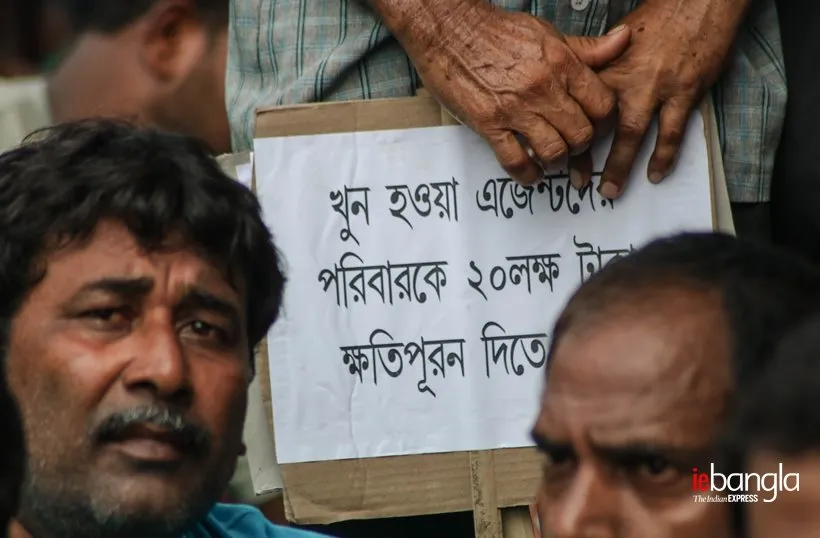 খুন হওয়া এজেন্টদের
পরিবারকে ২০লক্ষ
ক্ষতিপূরন দিতে
iebangla
The Indian EXPRESS